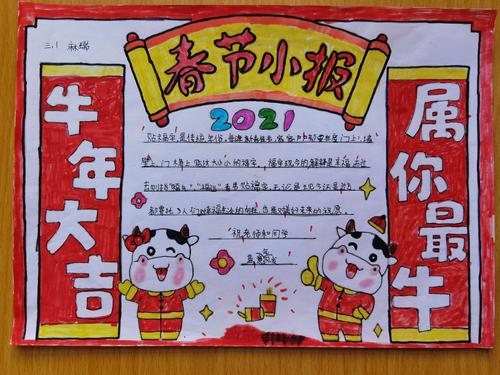 三.1
春节小报
2021
牛年大吉
属你最牛
贴福字,是传统年俗.每逢新春佳节,家家户户都要在屋门上、墙
壁上、门楣上贴大大小小的福字。福字现今的解释是幸福,过去
则指"福气"、"福运"春节贴福字,无论是现今还是过去,
都寄托了人们对幸福生活的向往,也是对美好未来的祝愿.
祝老师和同学